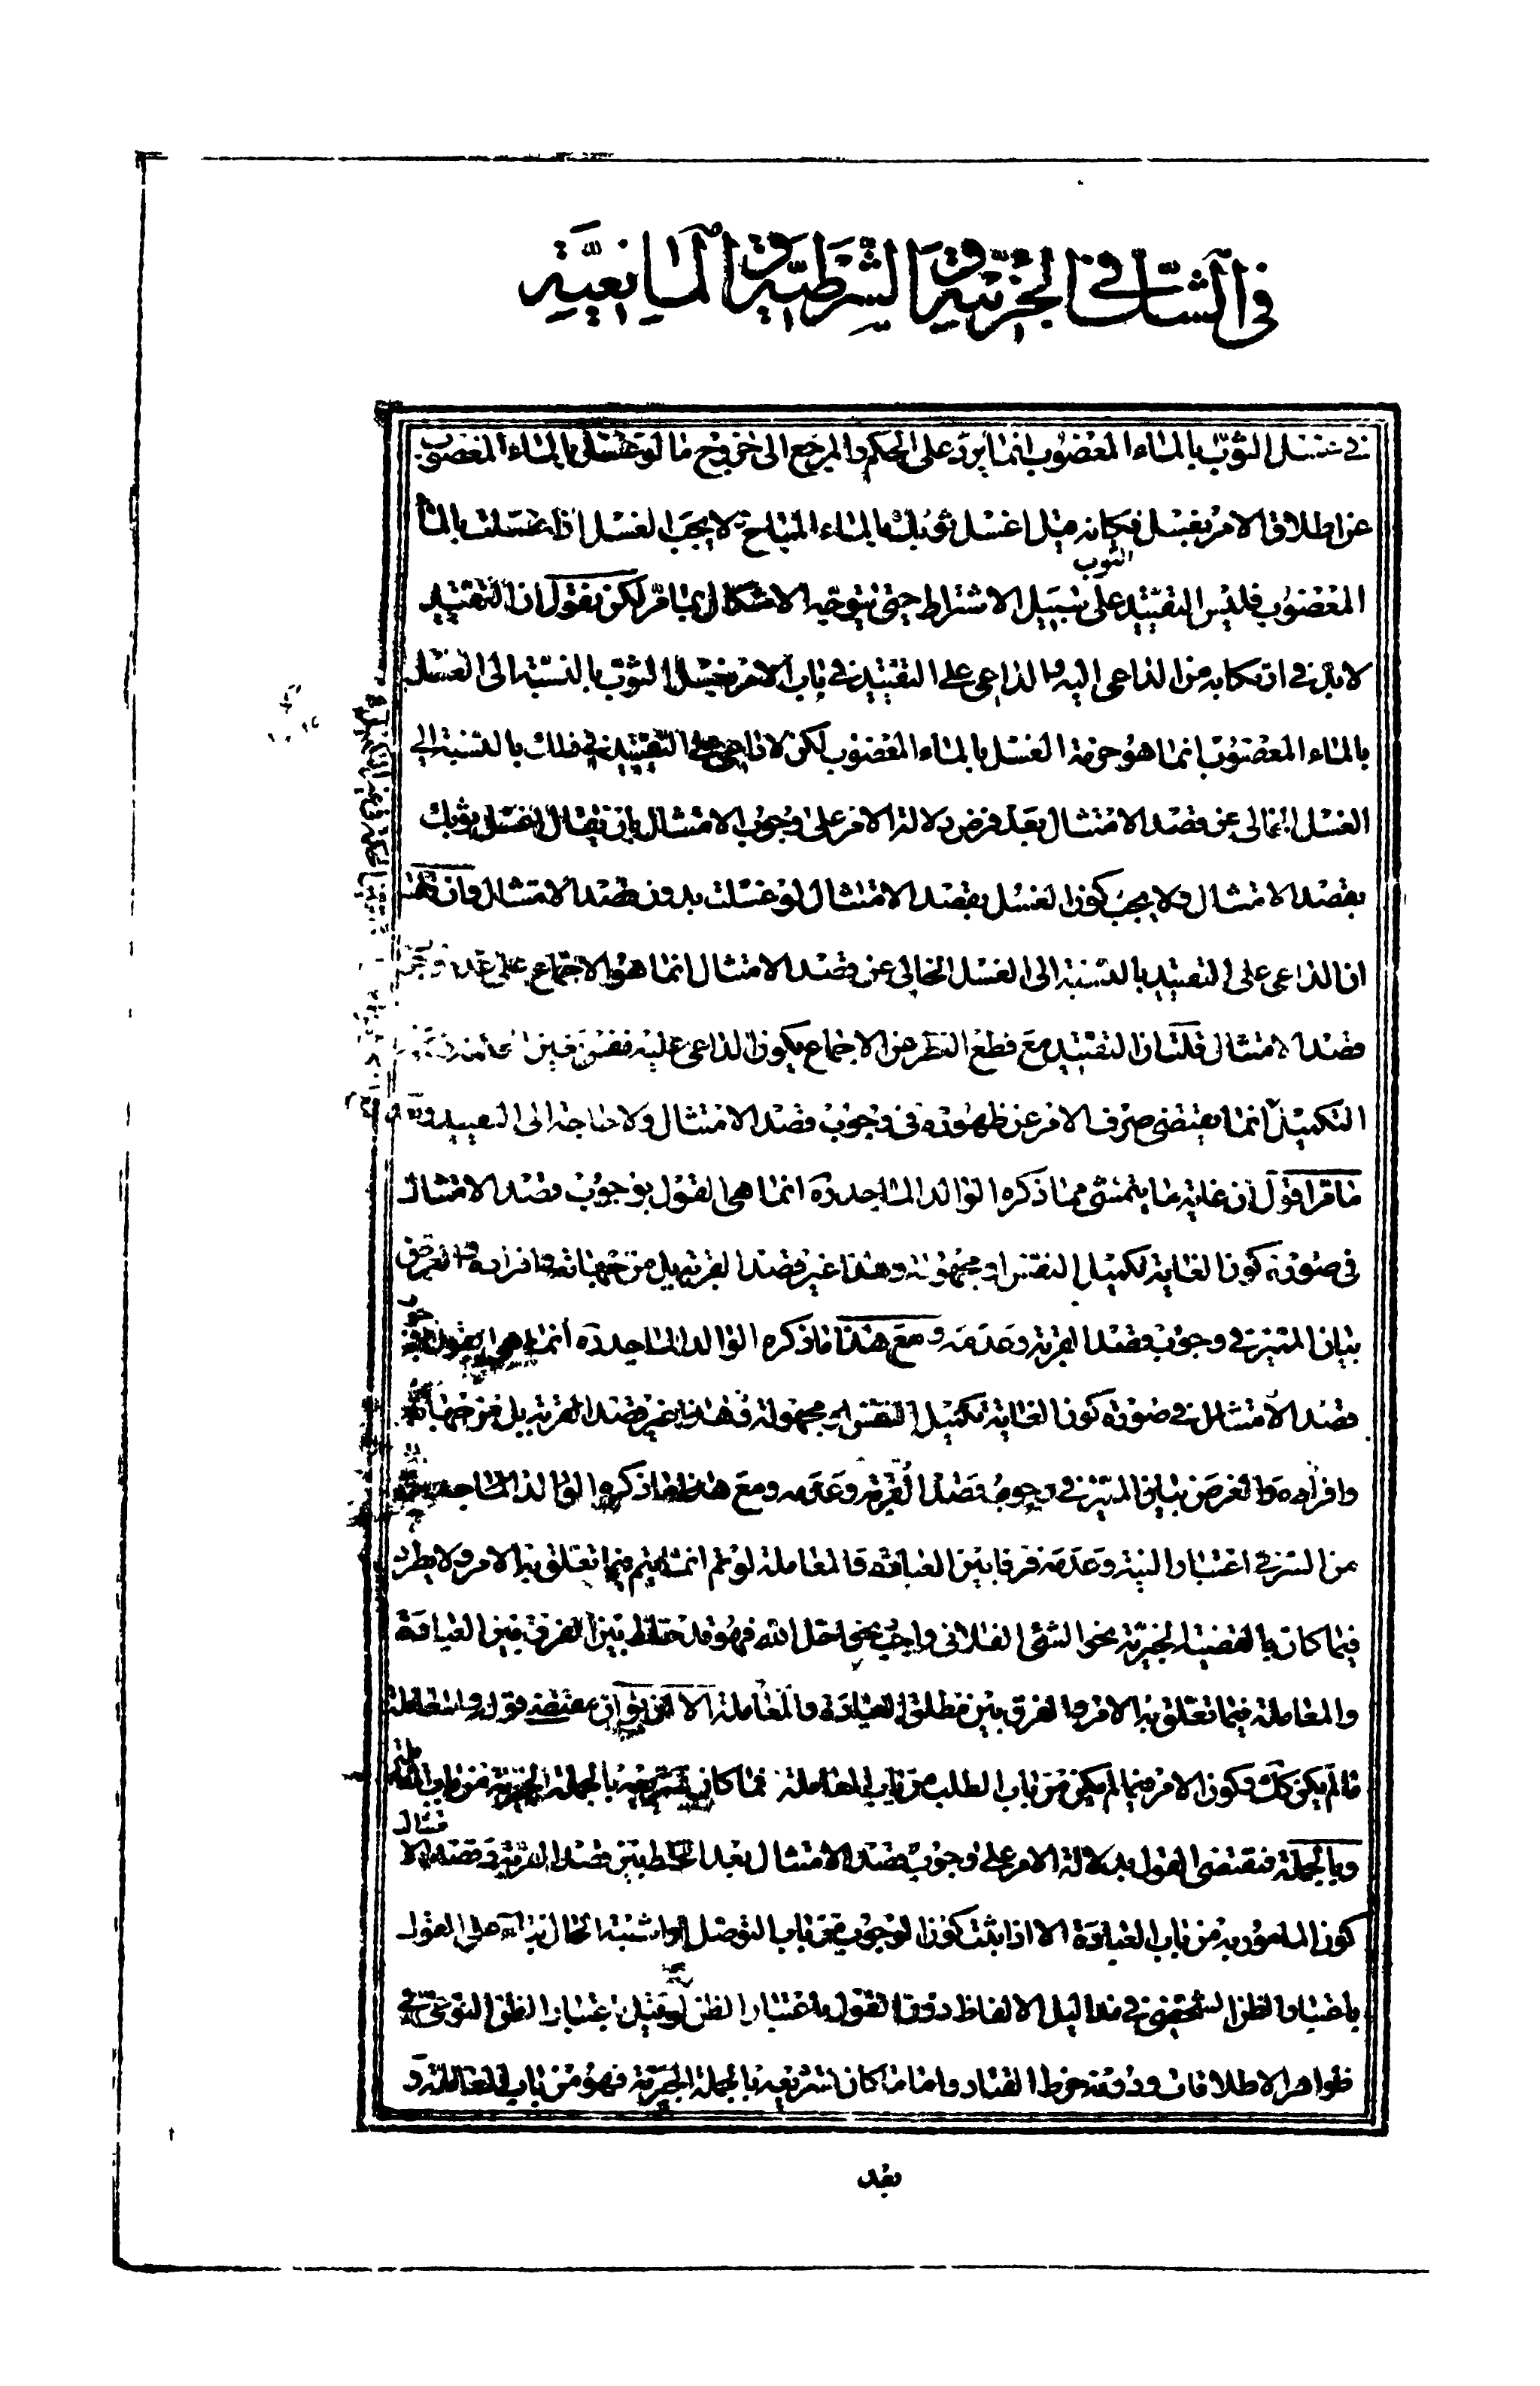 في الشك في الجزئية والشرطية والمانعية
في غسل الثوب بالماء المغصوب انما يرد على الحكم والمرجع الى خروج ما لو غسل بالماء المغصوب
عن اطلاق الامر بغسل فكانه قيل اغسل ثوبك بالماء المباح لا يجب الغسل اذا غسلت بالماء
الثوب
المغصوب فليس التقييد على سبيل الاشتراط حتى يتوجه الاشكال بما مر لكن نقول ان التقييد
لا بد في ارتكابه من الداعى اليه والداعى على التقييد في باب الامر بغسل الثوب بالنسبة الى الغسل
بالماء المغصوب انما هو حرمة الغسل بالماء المغصوب لكن لا داعى على التقييد في ذلك بالنسبة الى
الغسل الخالى عن قصد الامتثال بعد فرض دلالة الامر على وجوب الامتثال بان يقال اغسل ثوبك
بقصد الامتثال ولا يجب كون الغسل بقصد الامتثال لو غسلت بدون قصد الامتثال وان قلت
ان الداعى على التقييد بالنسبة الى الغسل الخالى عن قصد الامتثال انما هو الاجماع على عدم وجوب
قصد الامتثال قلت ان التقييد مع قطع النظر عن الاجماع يكون الداعى عليه
التكميل انما يقتضى صرف الامر عن ظهوره في وجوب قصد الامتثال ولا حاجة الى التقييد
ما مر اقول ان غاية ما يتمشى مما ذكره الوالد الماجد ره انما هى القول بوجوب قصد الامتثال
في صورة كون الغاية تكميل النفس او مجهولة وهذا غير قصد القربة بل من جهاته وافراده والغرض
بيان الميز في وجوب قصد القربة وعدمه ومع هذا ما ذكره الوالد الماجد ره انما هى القول بوجوب
قصد الامتثال في صورة كون الغاية تكميل النفس او مجهولة وهذا غير قصد القربة بل من جهاته
وافراده والغرض بيان الميز في وجوب قصد القربة وعدمه ومع هذا ما ذكره الوالد الماجد ره
من السر في اعتبار النية وعدمه فرقا بين العبادة والمعاملة لو تم انما يتم فيما تعلق به الامر ولا يطرد
فيما كان بالقضية الخبرية نحو الشئ الفلانى واجب نحو احل الله فهو قد خلط بين الفرق بين العبادة
والمعاملة فيما تعلق به الامر والفرق بين مطلق العبادة والمعاملة الا ان يق ان مقتضى قوله والمعاملة
ما لم يكن كك كون الامر فيما لم يكن من باب الطلب من باب المعاملة فما كان تشريعه بالجملة الخبرية من باب المعاملة
وبالجملة فمقتضى القول بدلالة الامر على وجوب قصد الامتثال بعد الخلط بين قصد القربة وقصد الامتثال
كون المامور به من باب العبادة الا اذا ثبت كون الوجوب من باب التوصل او اشتبه الحال بناء على القول
باعتبار الظن الشخصى في مداليل الالفاظ دون القول باعتبار الظن لو قيل باعتبار الظن النوعى في
ظواهر الاطلاقات ودونه خرط القتاد واما ما كان تشريعه بالجملة الخبرية فهو من باب المعاملة و
بعد